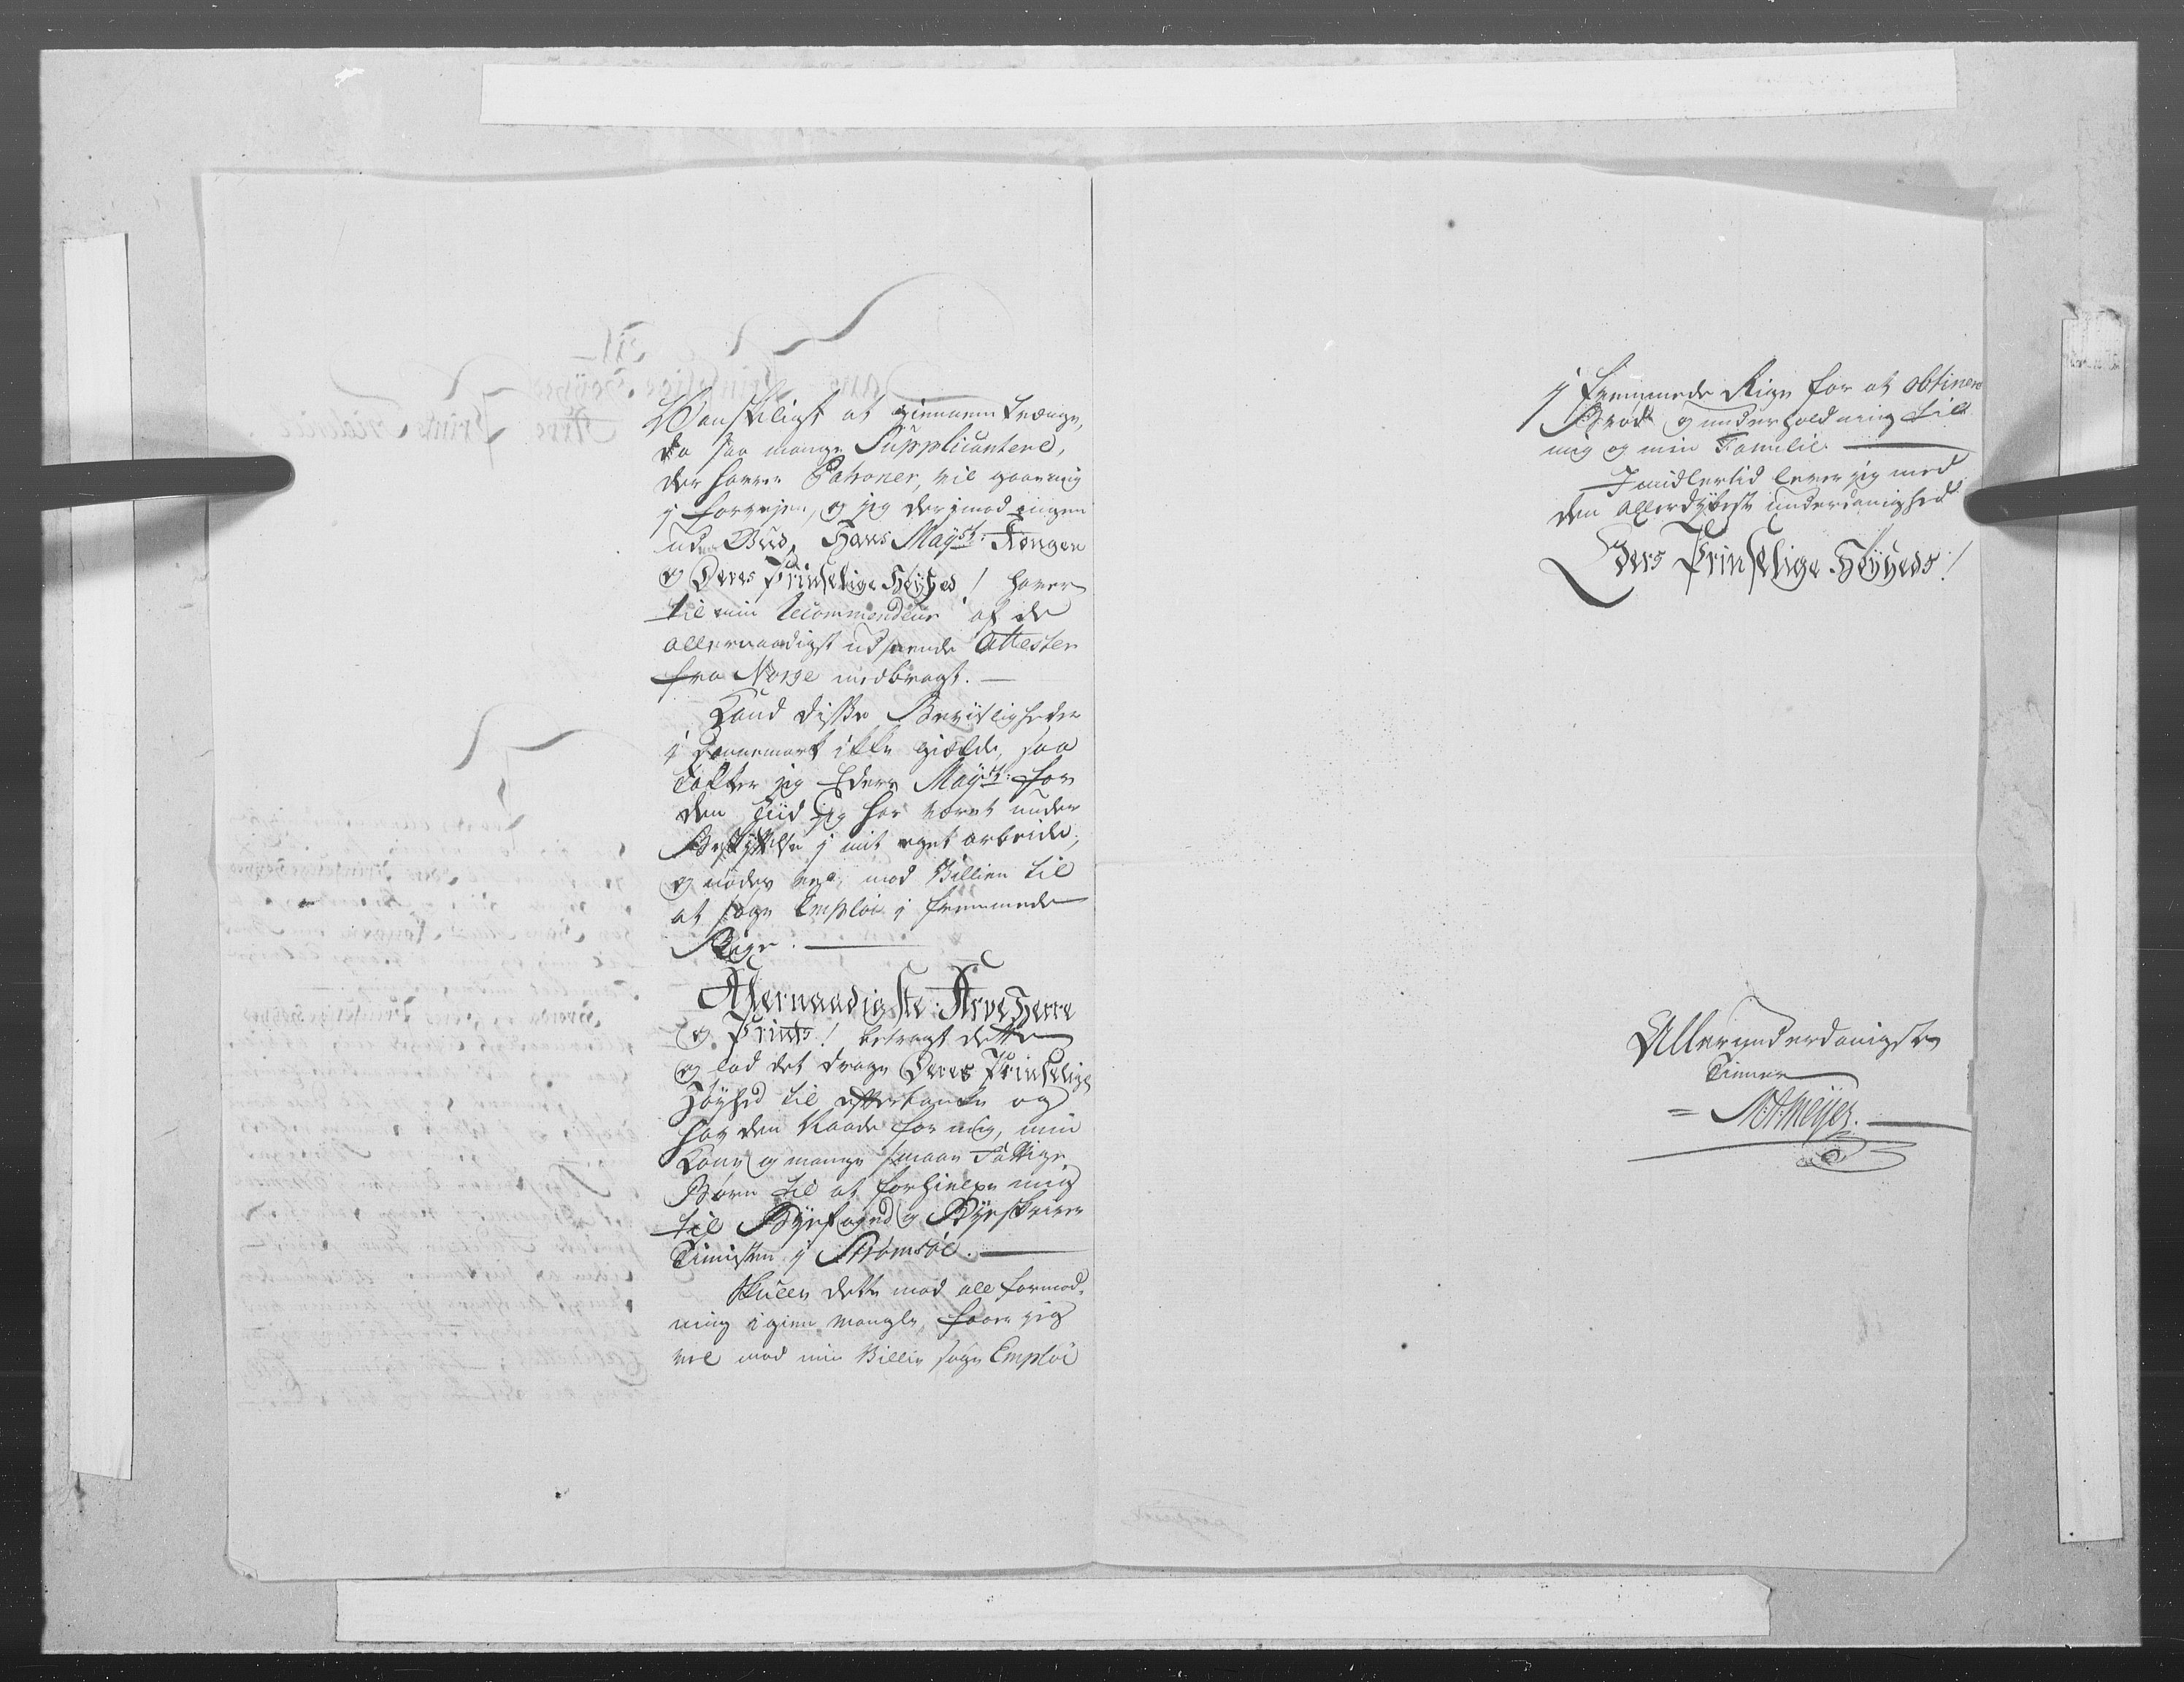 Vanskeligt at giennem trænge,
da saa mange Supplicantere,
der haver Patroner, vil gaae mig
i forvejen, og jeg derimod ingen
uden Gud, Hans Mayst: Kongen
og Deres Prinselige Høyhed! haver
til min Recommendeur af de
allernaadigst udseende Attester
fra Norge medbragt. —
Kand disse Beviisligheder
i Dannemark ikke gielde, saa
takker jeg Eders Mayst: for
den Tiid jeg har været under
Beskyttelse i mit eget arbeide,
og nødes vel mod Villien til
at søge Emploi i fremmede
Rige. —
Allernaadigste Arve Herre
og Prints! betragt dette
og lad det drage Deres Prinselige
Høyhed til eftertanke og
hav den Naade for mig, min
Kone og mange smaae Fattige
Børn til at forhielpe mig
til Byefoged og Byeskriver
Tienisten i Strømsøe. —
Skulle dette mod all formod-
ning igien mangle, faaer jeg
vel mod min Villie søge Emploi
i fremmede Rige for at obtinere
Brød og underholdning til
mig og min Familie —
Imidlertid lever jeg med
den allerdybeste underdanighed
Deres Prinselige Høyheds!
Allerunderdanigste
Tiener
= Meyer. —